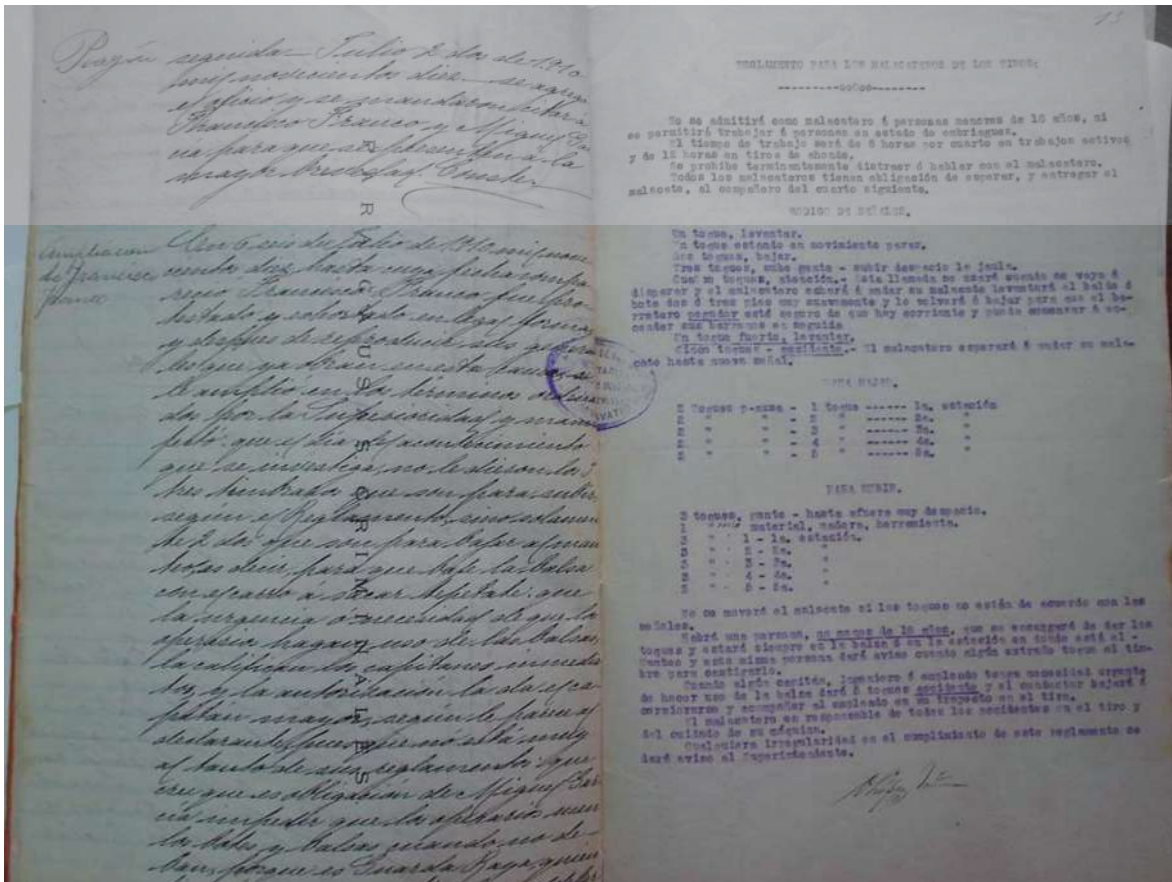 Razón seguida. Julio 2 dos de 1910
mil novecientos diez. se agrega
el oficio y se manda citar á
Francisco Franco y Miguel Gar
cía para que se presenten á la
mayor brevedad.
Ampliacion
de Francisco
Franco
En 6 seis de Julio de 1910 mil nove
cientos diez, hasta cuya fecha compa
reció Francisco Franco, fué pro
testado y exhortado en legal forma
y después de reproducir sus genera
les que ya obran en esta causa, se
le amplió en los términos ordena
dos por la Superioridad y mani
festó: que el día del acontecimiento
que se investiga, no le dieron los 3
tres timbrazos que son para subir
según el Reglamento, sino solamen
te 2 dos que son para bajar
es decir, para que baje la balsa
con el carro a sacar tepetate: que
la urgencia ó necesidad de que los
operarios hagan uso de las balsas,
la califican los capitanes inmedia
tos, y la autorización la da el ca
pitán mayor, según le parece al
declarante, pues que no está muy
al tanto de sus reglamentos: que
cree que es obligación de Miguel Gar
cía impedir que los operarios usen
los botes y balsas cuando no de
ban, porque es Guarda Raya, quien
R R U S S C R I N N A L E S
13
REGLAMENTO PARA LOS MALACATEROS DE LOS TIROS:
---------ooOoo--------
No se admitirá como malacatero á personas menores de 18 años, ni
se permitirá trabajar á personas en estado de embriaguez.
El tiempo de trabajo será de 8 horas por cuarto en trabajos activos
y de 12 horas en tiros de ahonde.
Se prohibe terminantemente distraer ó hablar con el malacatero.
Todos los malacateros tienen obligación de esperar, y entregar el
malacate, al compañero del cuarto siguiente.
CODIGO DE SEÑALES.
Un toque, levantar.
Un toque estando en movimiento parar.
Dos toques, bajar.
Tres toques, sube gente - subir despacio la jaula.
Cuatro toques, atención.- Esta llamada se usará cuando se vaya á
disparar y el malacatero echará á andar su malacate levantará el balde ó
bote dos ó tres pies muy suavemente y lo volverá á bajar para que el ba-
rretero pegador esté seguro de que hay corriente y pueda comenzar á en-
cender sus barrenos en seguida
Un toque fuerte, levantar.
Cinco toques - accidente.- El malacatero esperará á mover su mala-
cate hasta nueva señal.
PARA BAJAR.
2 Toques p-ausa - 1 toque ------ 1a. estación
2 " " - 2 " ------ 2a. "
2 " " - 3 " ------ 3a. "
2 " " - 4 " ------ 4a. "
2 " " - 5 " ------ 5a. "
PARA SUBIR.
3 toques, gente - hasta afuera muy despacio.
1 " material, madera, herramienta.
3 " - 1 - 1a. estación.
3 " - 2 - 2a. "
3 " - 3 - 3a. "
3 " - 4 - 4a. "
3 " - 5 - 5a. "
No se moverá el malacate si los toques no están de acuerdo con las
señales.
Habrá una persona, no menos de 18 años, que se encargará de dar los
toques y estará siempre en la balsa ó en la estación en donde está el -
y esta misma persona dará aviso cuando algún extraño toque el tim-
bre para castigarlo.
Cuando algún Capitán, Ingeniero ó empleado tenga necesidad urgente
de hacer uso de la balsa dará 5 toques accidente y el conductor bajará á
cerciorarse y acompañar al empleado en su trayecto en el tiro.
El malacatero es responsable de todos los accidentes en el tiro y
del cuidado de su máquina.
Cualquiera irregularidad en el cumplimiento de este reglamento se
dará aviso al Superintendente.